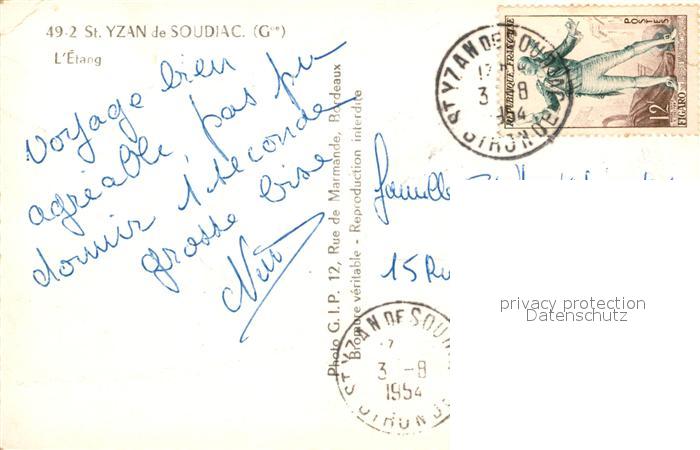 49-2 St. YZAN de SOUDIAC. (Gde)
L'Étang
Voyage bien
agréable, pas pu
dormir 1 seconde
grosse bise
Photo G.I.P. 12, Rue de Marmande, Bordeaux
Bromure véritable - Reproduction interdite
ST YZAN DE SOUDIAC
3 -8
1954
GIRONDE
RÉPUBLIQUE FRANÇAISE
POSTES
12F
FIGARO
Famille
15 Ru
privacy protection
Datenschutz
ST YZAN DE SOU
3 -8
1954
GIRONDE